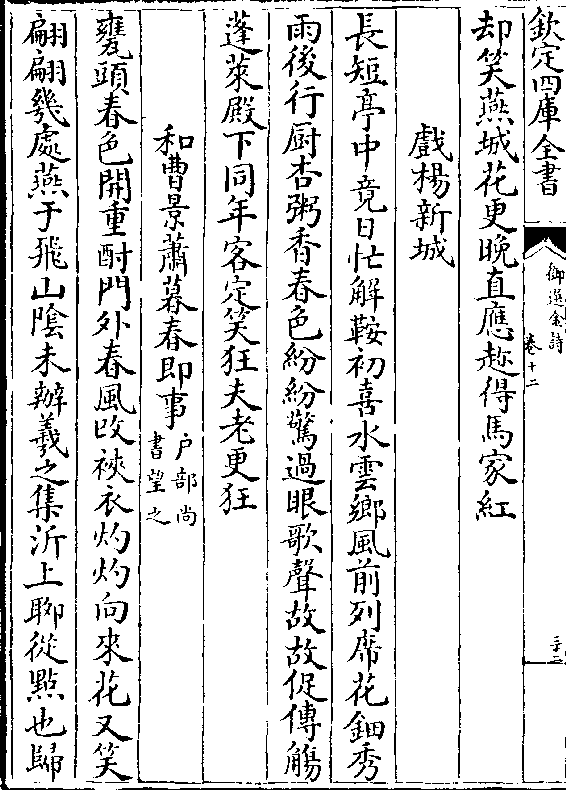 欽定四庫全書
御選金詩
卷十二
三十二
却笑燕城花更晚直應趂得馬家紅
戲楊新城
長短亭中竟日忙解鞍初喜水雲鄉風前列席花鈿秀
雨後行厨杏粥香春色紛紛驚過眼歌聲故故促傳觴
蓬萊殿下同年客定笑狂夫老更狂
和曹景蕭暮春即事
户部尚
書望之
甕頭春色開重酎門外春風改裌衣灼灼向來花又笑
翩翩幾處燕于飛山隂未辦羲之集沂上聊從㸃也歸